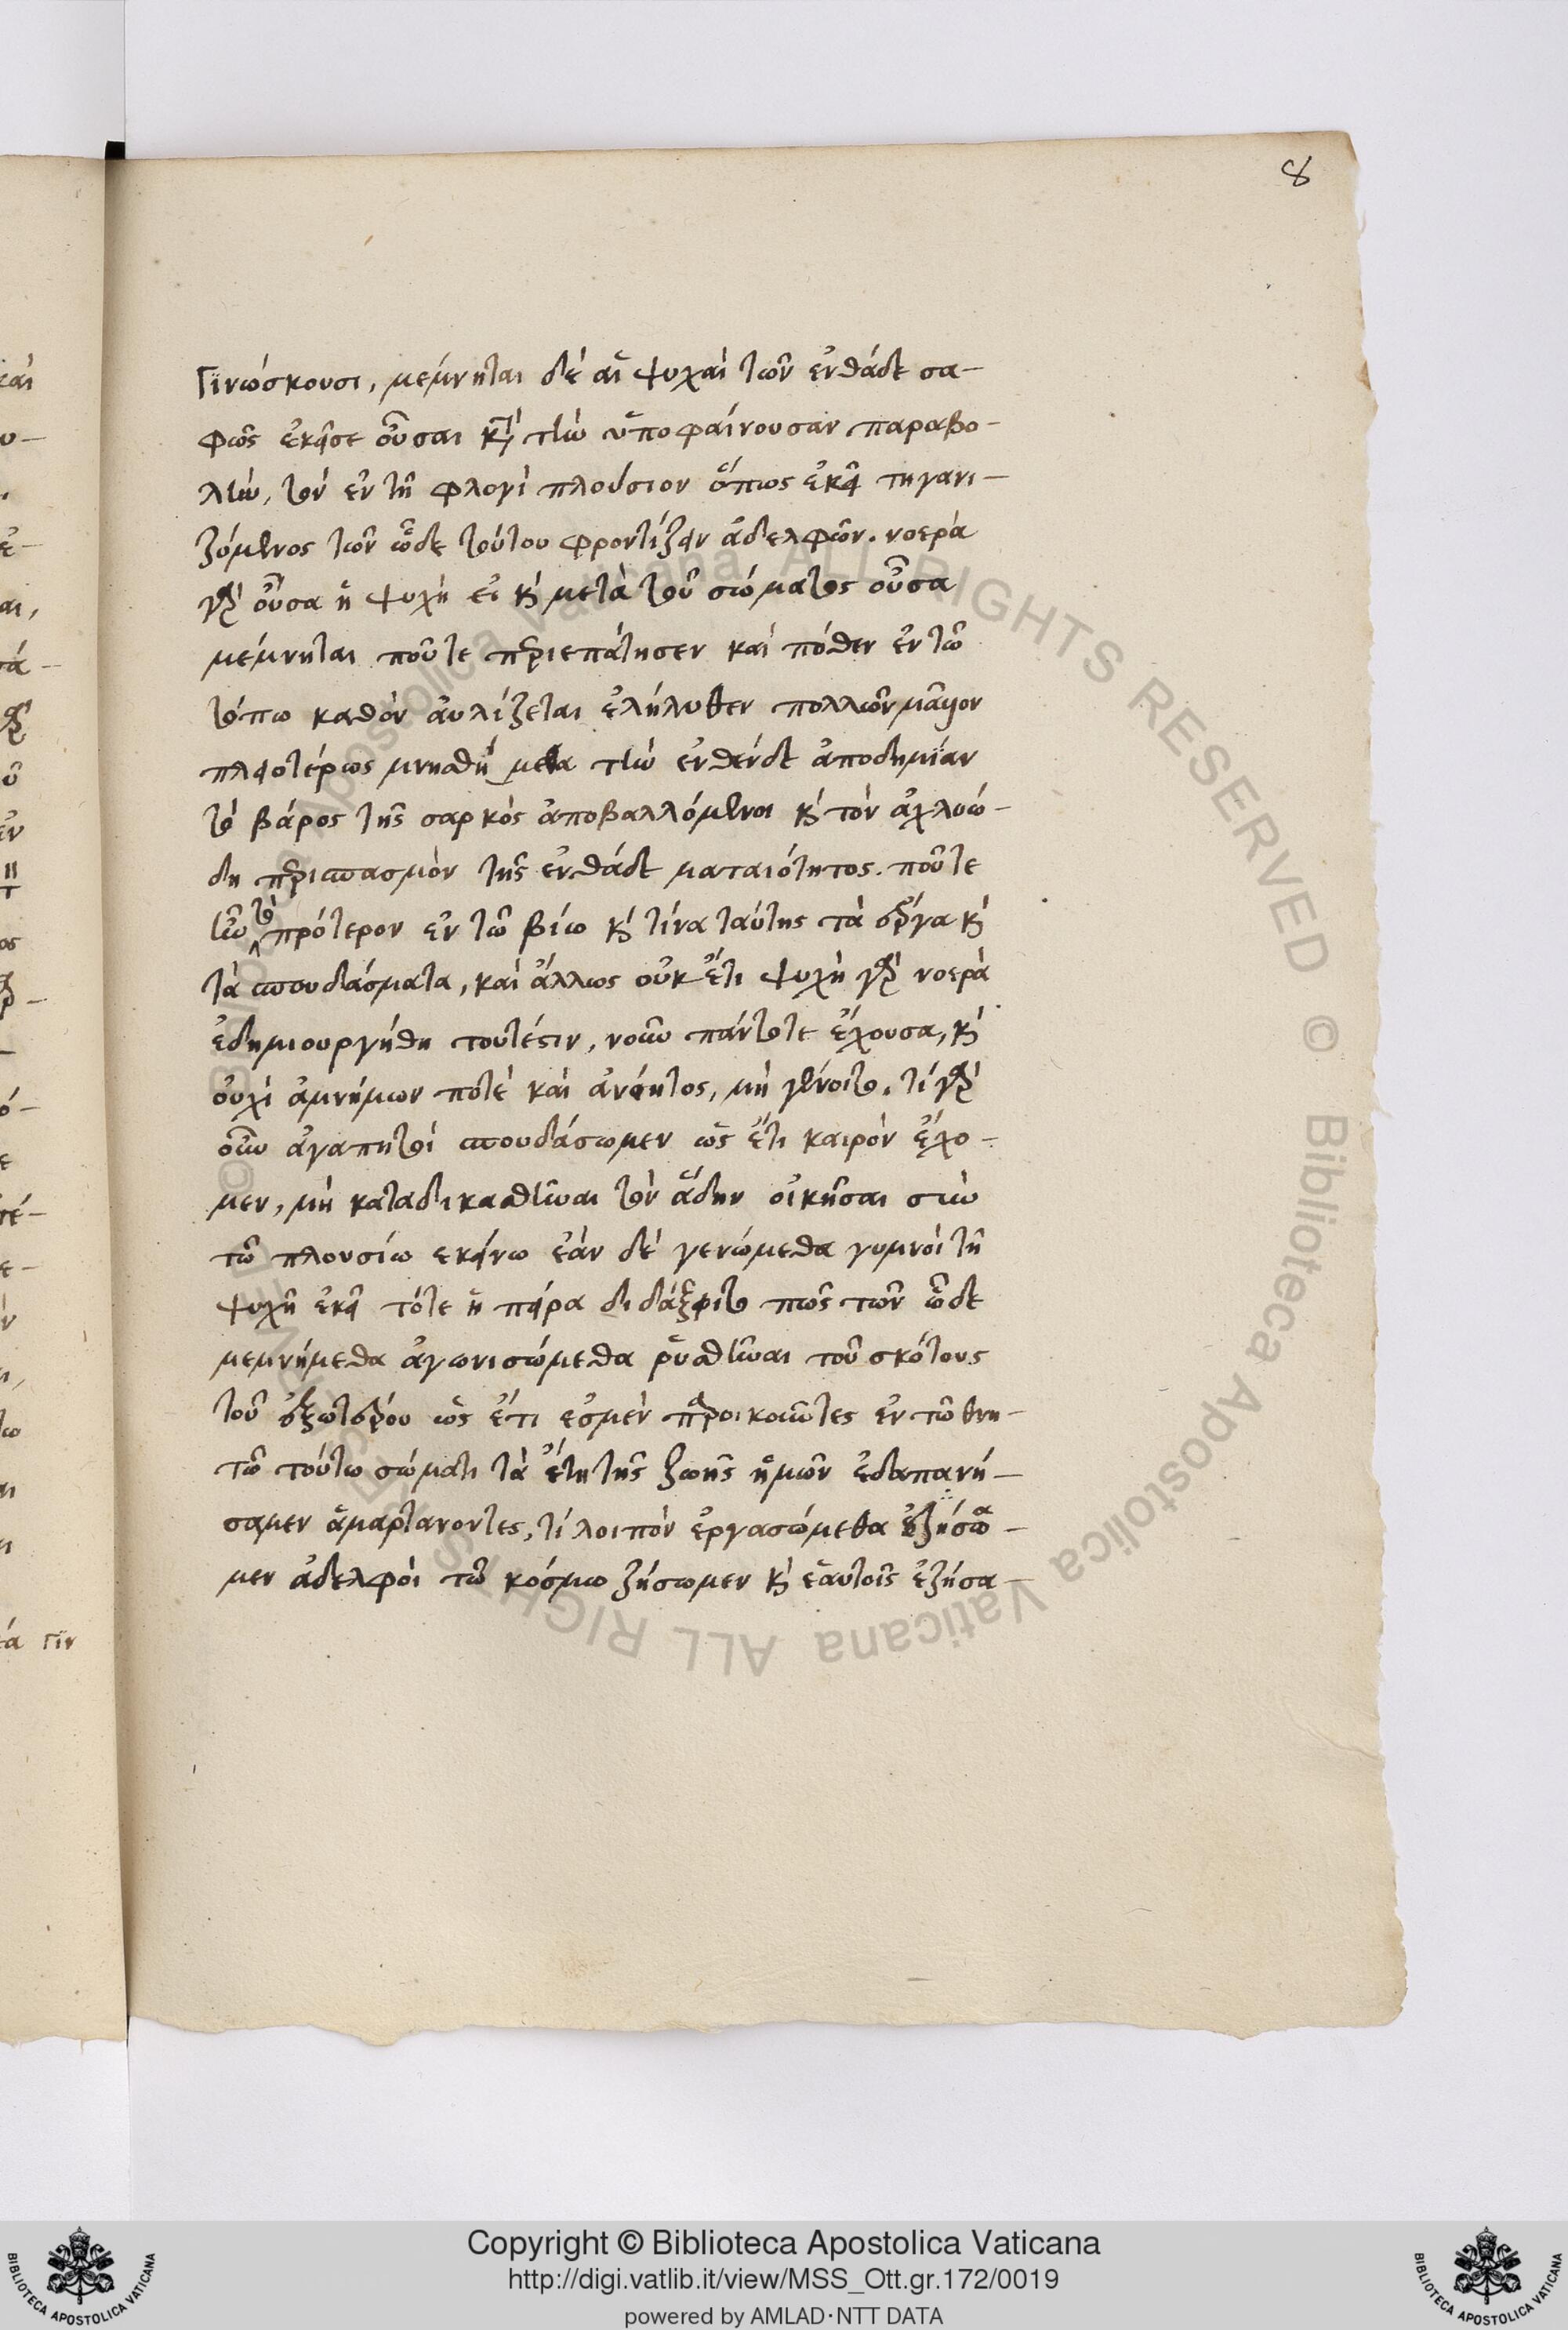 8
γινώσκουσι, μέμνηνται δὲ αἱ ψυχαὶ τῶν ἐνθάδε σα-
φῶς ἐκεῖσε οὖσαι κατὰ τὴν ὑποφαίνουσαν παραβο-
λὴν, τὸν ἐν τῆ φλογὶ πλούσιον ὅπως ἐκεῖ τηγανι-
ζόμενος τῶν ὧδε τούτου φροντίζειν ἀδελφῶν. νοερὰ
γὰρ οὖσα ἡ ψυχὴ εἰ καὶ μετὰ τοῦ σώματος οὖσα
μέμνηται ποῦτε περιεπάτησεν καὶ πόθεν ἐν τῶ
τόπω καθὸν αὐλίζεται ἐλήλυθεν πολλῶν μᾶλλον
πλειοτέρως μνησθῆ μετα τὴν ἐνθένδε ἀποδημίαν
τὸ βάρος τῆς σαρκὸς ἀποβαλλόμενοι καὶ τὸν ἀχλυώ-
δη περισπασμὸν τῆς ἐνθάδε ματαιότητος. ποῦτε
ἦν τὸ πρότερον ἐν τῶ βίω καὶ τίνα ταύτης τὰ ἔργα καὶ
τὰ σπουδάσματα, καὶ ἄλλως οὐκ ἔτι ψυχὴ γὰρ νοερὰ
ἐδημιουργήθη τουτέστιν, νοῦν πάντοτε ἔχουσα, καὶ
οὐχὶ ἀμνήμων ποτὲ καὶ ἀνόητος, μὴ γένοιτο. τί γὰρ
οὖν ἀγαπητοὶ σπουδάσωμεν ὡς ἔτι καιρὸν ἔχο-
μεν, μὴ καταδικασθῆναι τὸν ἅδην οἰκῆσαι σὺν
τῶ πλουσίω ἐκείνω ἐὰν δὲ γενώμεθα γυμνοὶ τῆ
ψυχῆ ἐκεῖ τότε ἡ πεῖρα διδάξειε τὸ πῶς τῶν ὧδε
μεμνήμεθα ἀγωνισώμεθα ῥυσθῆναι τοῦ σκότους
τοῦ ἐξωτέρου ὡς ἔτι ἐσμὲν παροικοῦντες ἐν τῶ θνη-
τῶ τούτω σώματι τὰ ἔτη τῆς ζωῆς ἡμῶν ἐδαπανή-
σαμεν ἁμαρτάνοντες, τί λοιπὸν ἐργασώμεθα ἐζήσα-
μεν ἀδελφοὶ τῶ κόσμω ζήσωμεν καὶ ἑαυτοῖς ἐζήσα-
Copyright © Biblioteca Apostolica Vaticana
http://digi.vatlib.it/view/MSS_Ott.gr.172/0019
powered by AMLAD·NTT DATA